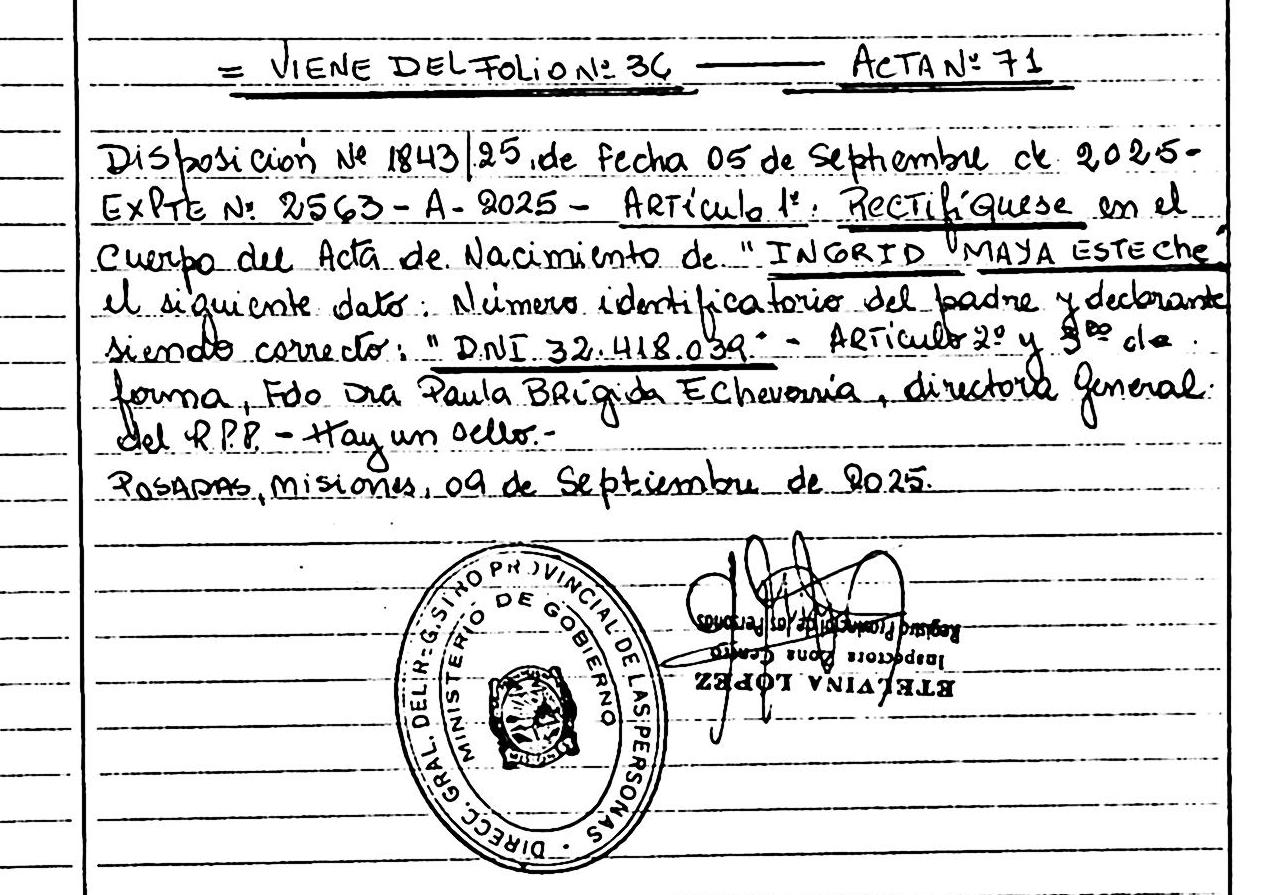 = VIENE DEL FOLIO Nº 36 —— ACTA Nº 71
Disposición Nº 1843/25 de fecha 05 de Septiembre de 2025-
EXPTE Nº 2563-A-2025- ARTículo 1º: RECTIFíQUESE en el
Cuerpo del Acta de Nacimiento de "INGRID MAYA ESTECHE"
el siguiente dato: Número identificatorio del padre y declarante
siendo correcto: "DNI 32.418.039" - ARTículo 2º y 3ro de
forma, Fdo Dra Paula BRígida Echeverría, directora General
del R.P.P. - Hay un sello.-
POSADAS, Misiones, 09 de Septiembre de 2025.
DIRECC. GRAL. DEL REGISTRO PROVINCIAL DE LAS PERSONAS
MINISTERIO DE GOBIERNO
ETELVINA LOPEZ
Inspectora Zona Centro
Registro Provincial de las Personas